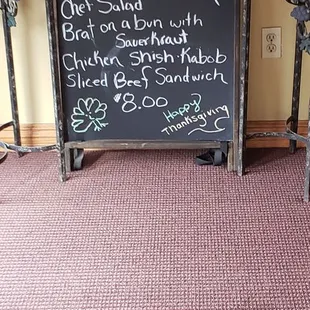 Chef Salad
Brat on a bun with
Sauerkraut
Chicken Shish-Kabob
Sliced Beef Sandwich
$8.00
Happy
Thanksgiving